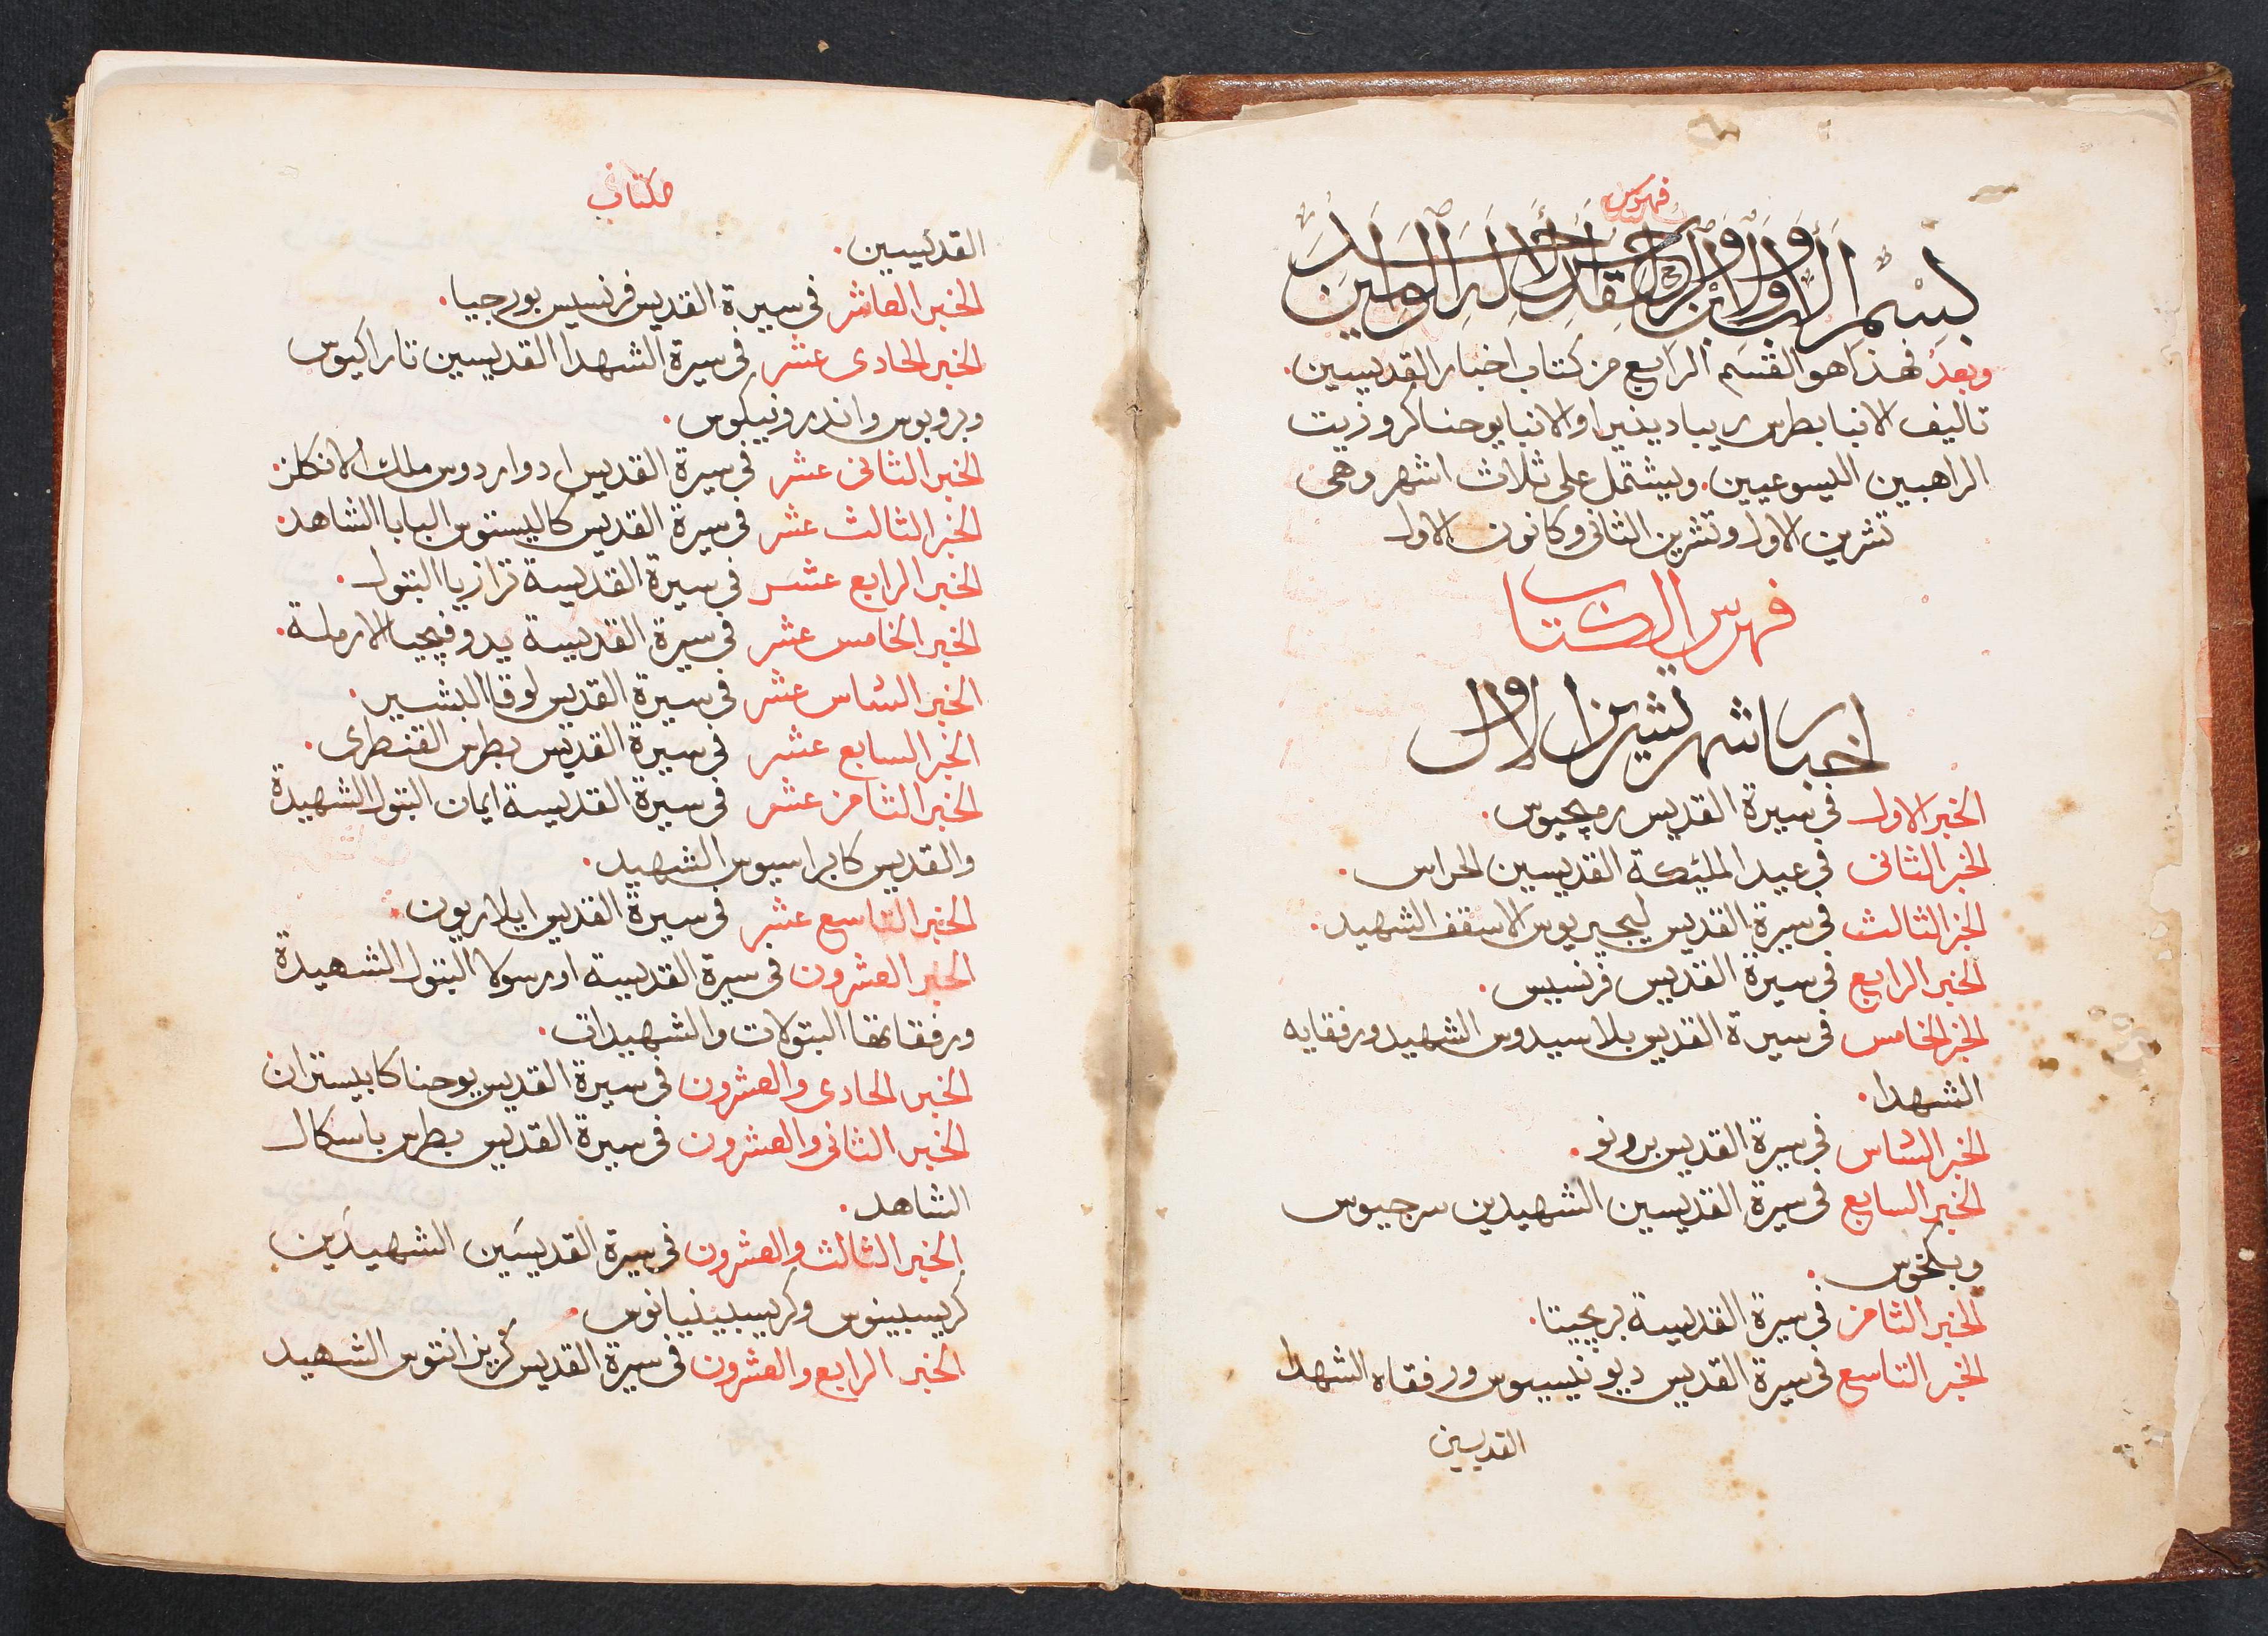 فهرس
بسم الاب والابن والروح القدس الاله الواحد امين
وبعد فهذا هو القسم الرابع من كتاب اخبار القديسين.
تاليف الانبا بطرس ريبادينيرا والانبا يوحنا كروزيت
الراهبين اليسوعيين. ويشتمل على ثلاث اشهر وهى
تشرين الاول وتشرين الثانى وكانون الاول
فهرس الكتاب
اخبار شهر تشرين الاول
الخبر الاول فى سيرة القديس رمجيوس.
الخبر الثانى فى عيد المليكة القديسين الحراس.
الخبر الثالث فى سيرة القديس ليجيريوس الاسقف الشهيد.
الخبر الرابع فى سيرة القديس فرنسيس.
الخبر الخامس فى سيرة القديس بلاسيدوس الشهيد ورفقايه
الشهدا.
الخبر السادس فى سيرة القديس برونو.
الخبر السابع فى سيرة القديسين الشهيدين سرجيوس
وبكخوس.
الخبر الثامن فى سيرة القديسة بريجيتا.
الخبر التاسع فى سيرة القديس ديونيسيوس ورفقاه الشهدا
القديسين
الكتاب
القديسين.
الخبر العاشر فى سيرة القديس فرنسيس بورجيا.
الخبر الحادى عشر فى سيرة الشهدا القديسين تاراكيوس
وبروبوس واندرونيكوس.
الخبر الثانى عشر فى سيرة القديس ادواردوس ملك الانكلز.
الخبر الثالث عشر فى سيرة القديس كاليستوس البابا الشاهد.
الخبر الرابع عشر فى سيرة القديسة ترازيا البتول.
الخبر الخامس عشر فى سيرة القديسة يدوفيجيا الارملة.
الخبر السادس عشر فى سيرة القديس لوقا البشير.
الخبر السابع عشر فى سيرة القديس بطرس القنطرى.
الخبر الثامن عشر فى سيرة القديسة ايمان البتول الشهيدة
والقديس كابراسيوس الشهيد.
الخبر التاسع عشر فى سيرة القديس ايلاريون.
الخبر العشرون فى سيرة القديسة اورسولا البتول الشهيدة
ورفقاتها البتولات والشهيدات.
الخبر الحادى والعشرون فى سيرة القديس يوحنا كابيستران
الخبر الثانى والعشرون فى سيرة القديس بطرس باسكال
الشاهد.
الخبر الثالث والعشرون فى سيرة القديسَين الشهيدَين
كريسبينوس وكريسبينيانوس.
الخبر الرابع والعشرون فى سيرة القديس كريزانتوس الشهيد